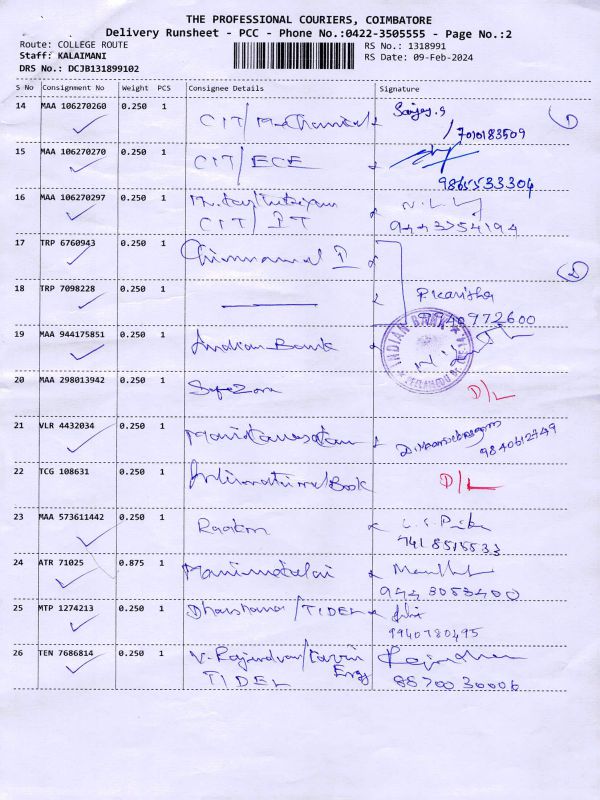 THE PROFESSIONAL COURIERS, COIMBATORE
Delivery Runsheet - PCC - Phone No.:0422-3505555 - Page No.:2
Route: COLLEGE ROUTE
RS No.: 1318991
Staff: KALAIMANI
RS Date: 09-Feb-2024
DRS No.: DCJB131899102
S No Consignment No Weight PCS Consignee Details Signature
14 MAA 106270260 0.250 1 CIT/ Sanjay.S 1
7010183509
15 MAA 106270270 0.250 1 CIT/ECE
9865533304
16 MAA 106270297 0.250 1
CIT/IT 9443754194
17 TRP 6760943 0.250 1 2
18 TRP 7098228 0.250 1 P. Karisha
9940972600
19 MAA 944175851 0.250 1 Indian Bank INDIAN BANK
20 MAA 298013942 0.250 1 SafeZone D/L
21 VLR 4432034 0.250 1
9840612749
22 TCG 108631 0.250 1 International Book D/L
23 MAA 573611442 0.250 1
7418515533
24 ATR 71025 0.875 1
9443053400
25 MTP 1274213 0.250 1 Dharshana/TIDEL
9940780495
26 TEN 7686814 0.250 1 V. Rajendran/ Engg Rajendran
TIDEL 8870030006